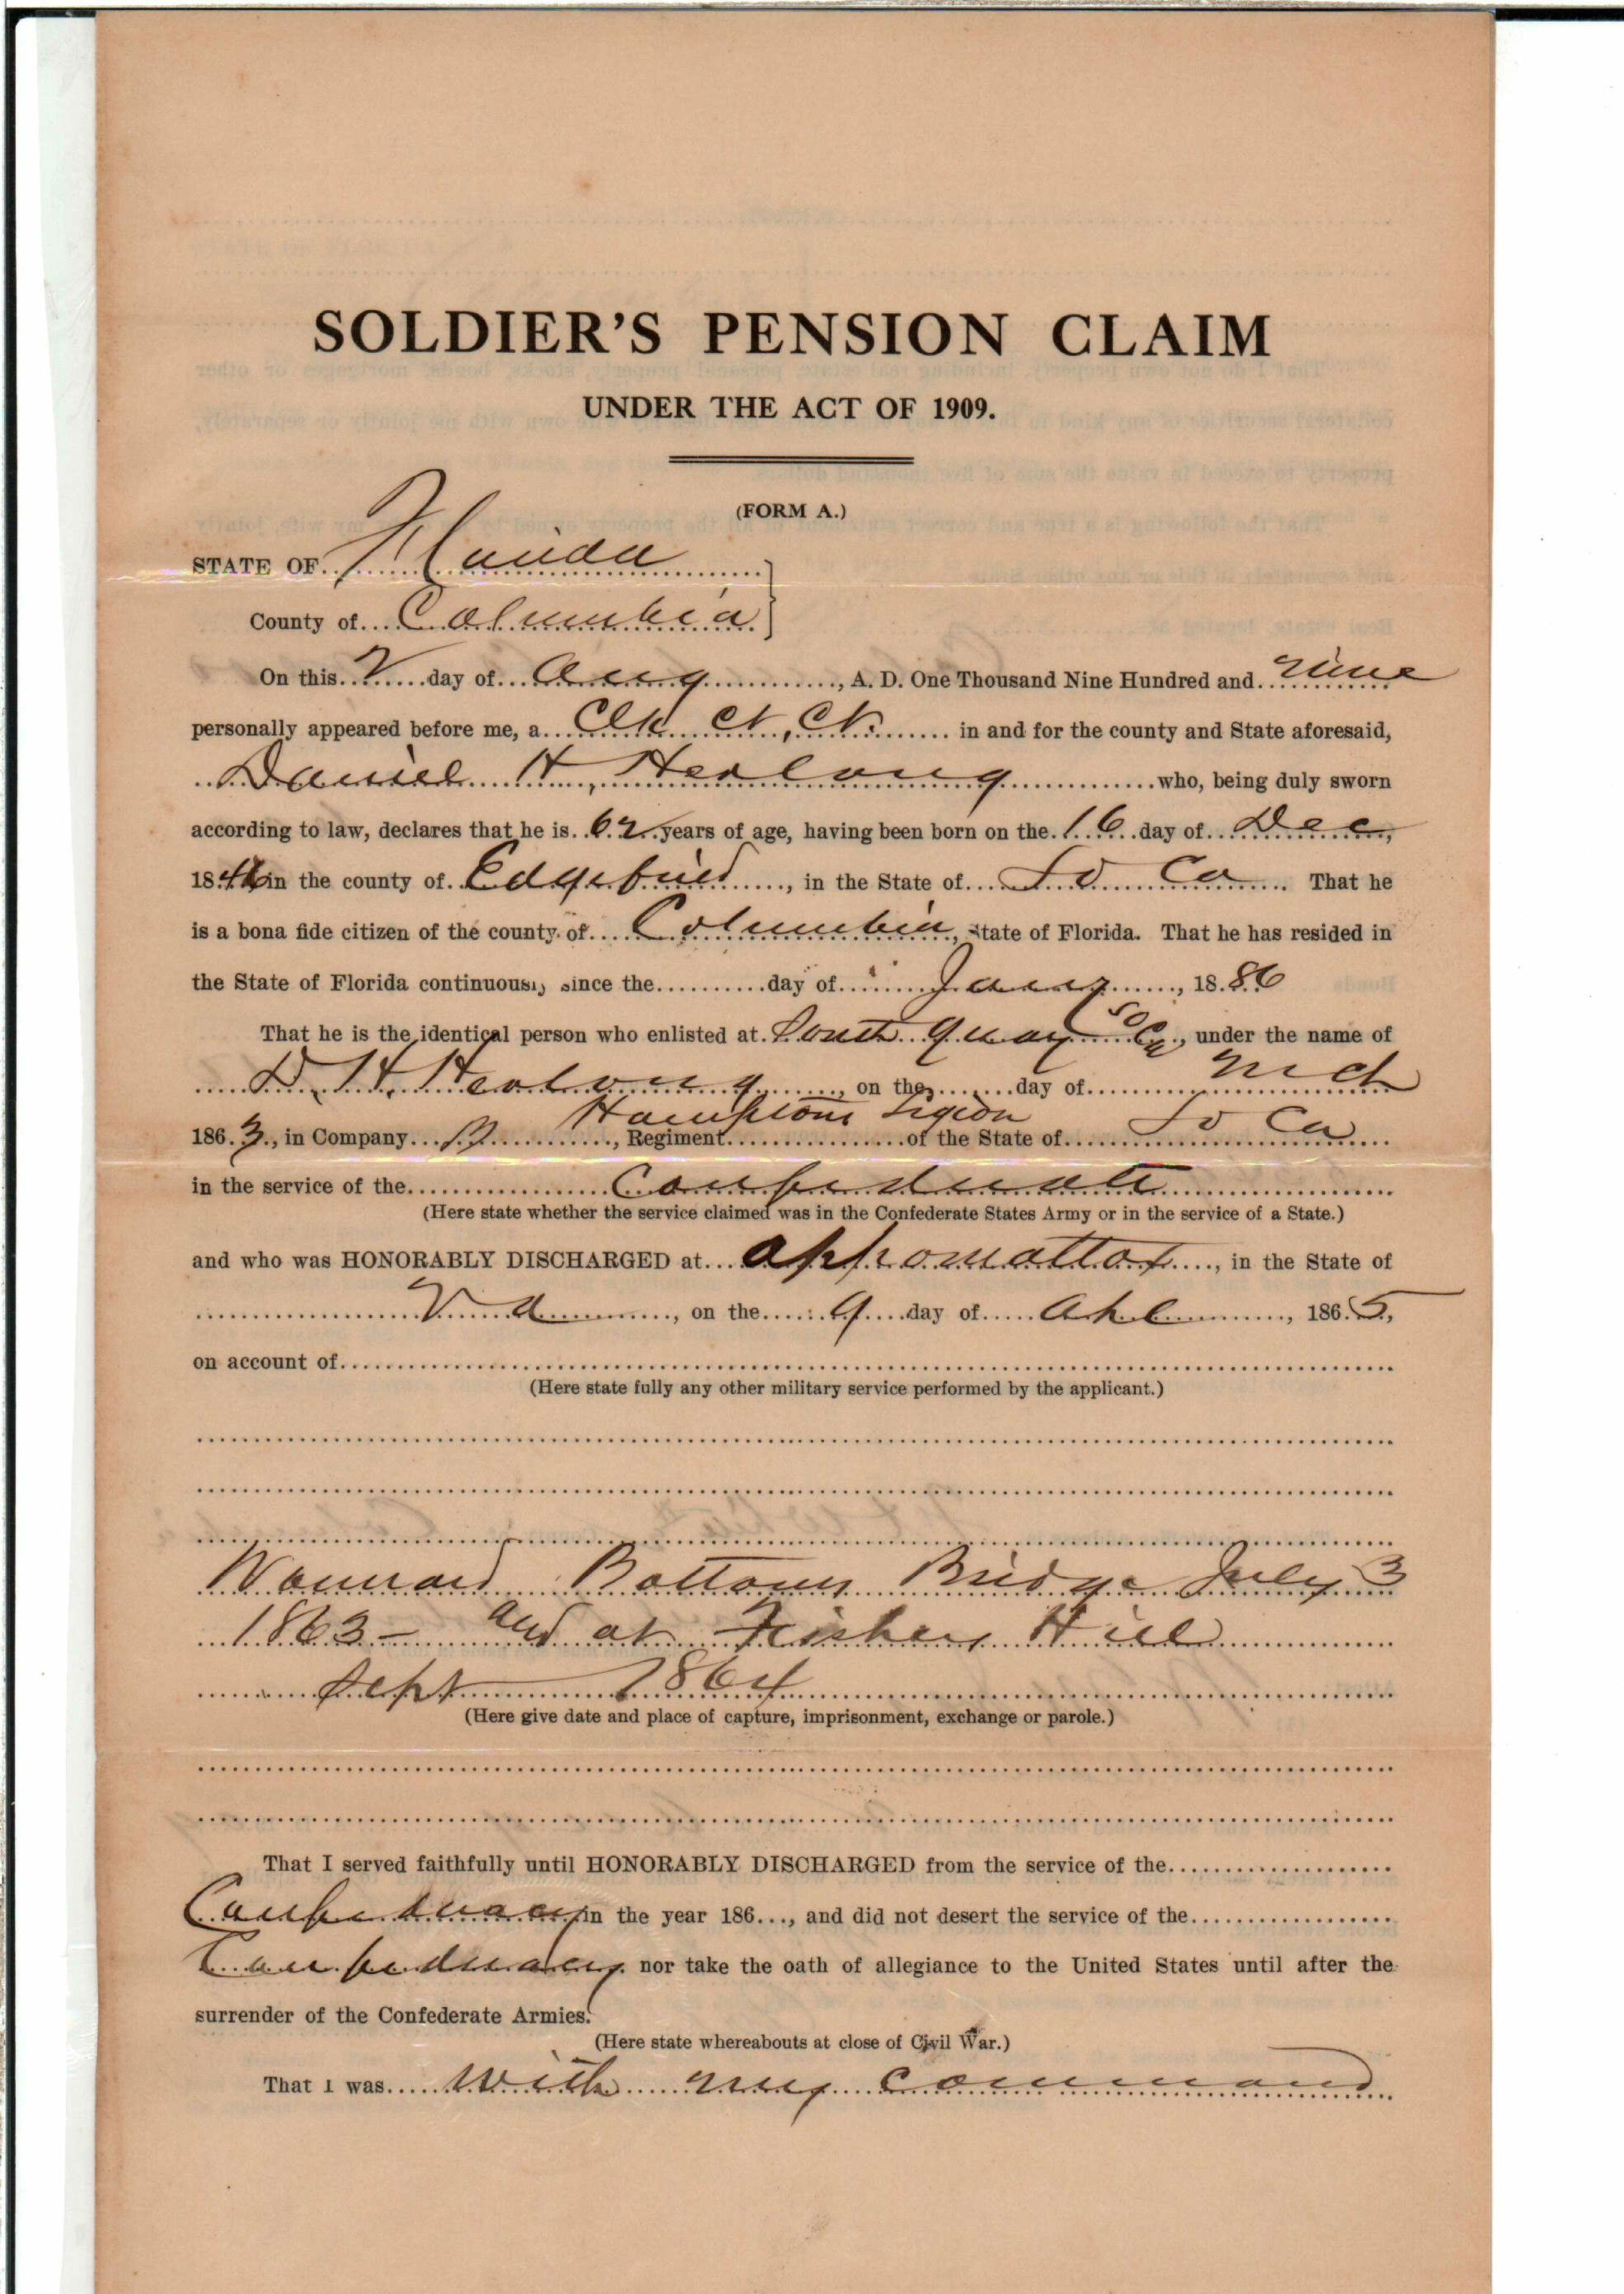 SOLDIER'S PENSION CLAIM
UNDER THE ACT OF 1909.
(FORM A.)
STATE OF Florida
County of Columbia
On this 2 day of Aug, A. D. One Thousand Nine Hundred and nine
personally appeared before me, a Clk Ct. Ct. in and for the county and State aforesaid,
Daniel H. Herlong who, being duly sworn
according to law, declares that he is 62 years of age, having been born on the 16 day of Dec,
1846 in the county of Edgefield, in the State of So Ca. That he
is a bona fide citizen of the county of Columbia, State of Florida. That he has resided in
the State of Florida continuously since the day of Jany, 1886
That he is the identical person who enlisted at South Quay So Ca, under the name of
D. H. Herlong, on the day of Mch
1863, in Company B, Regiment Hamptons Legion of the State of So Ca
in the service of the Confederate
(Here state whether the service claimed was in the Confederate States Army or in the service of a State.)
and who was HONORABLY DISCHARGED at appromattox, in the State of
Va, on the 9 day of Apl, 1865,
on account of
(Here state fully any other military service performed by the applicant.)
Bottoms Bridge July 3
1863 - and at Fishers Hill
Sept 1864
(Here give date and place of capture, imprisonment, exchange or parole.)
That I served faithfully until HONORABLY DISCHARGED from the service of the
Confederacy in the year 186..., and did not desert the service of the
Confederacy nor take the oath of allegiance to the United States until after the
surrender of the Confederate Armies.
(Here state whereabouts at close of Civil War.)
That I was with my command